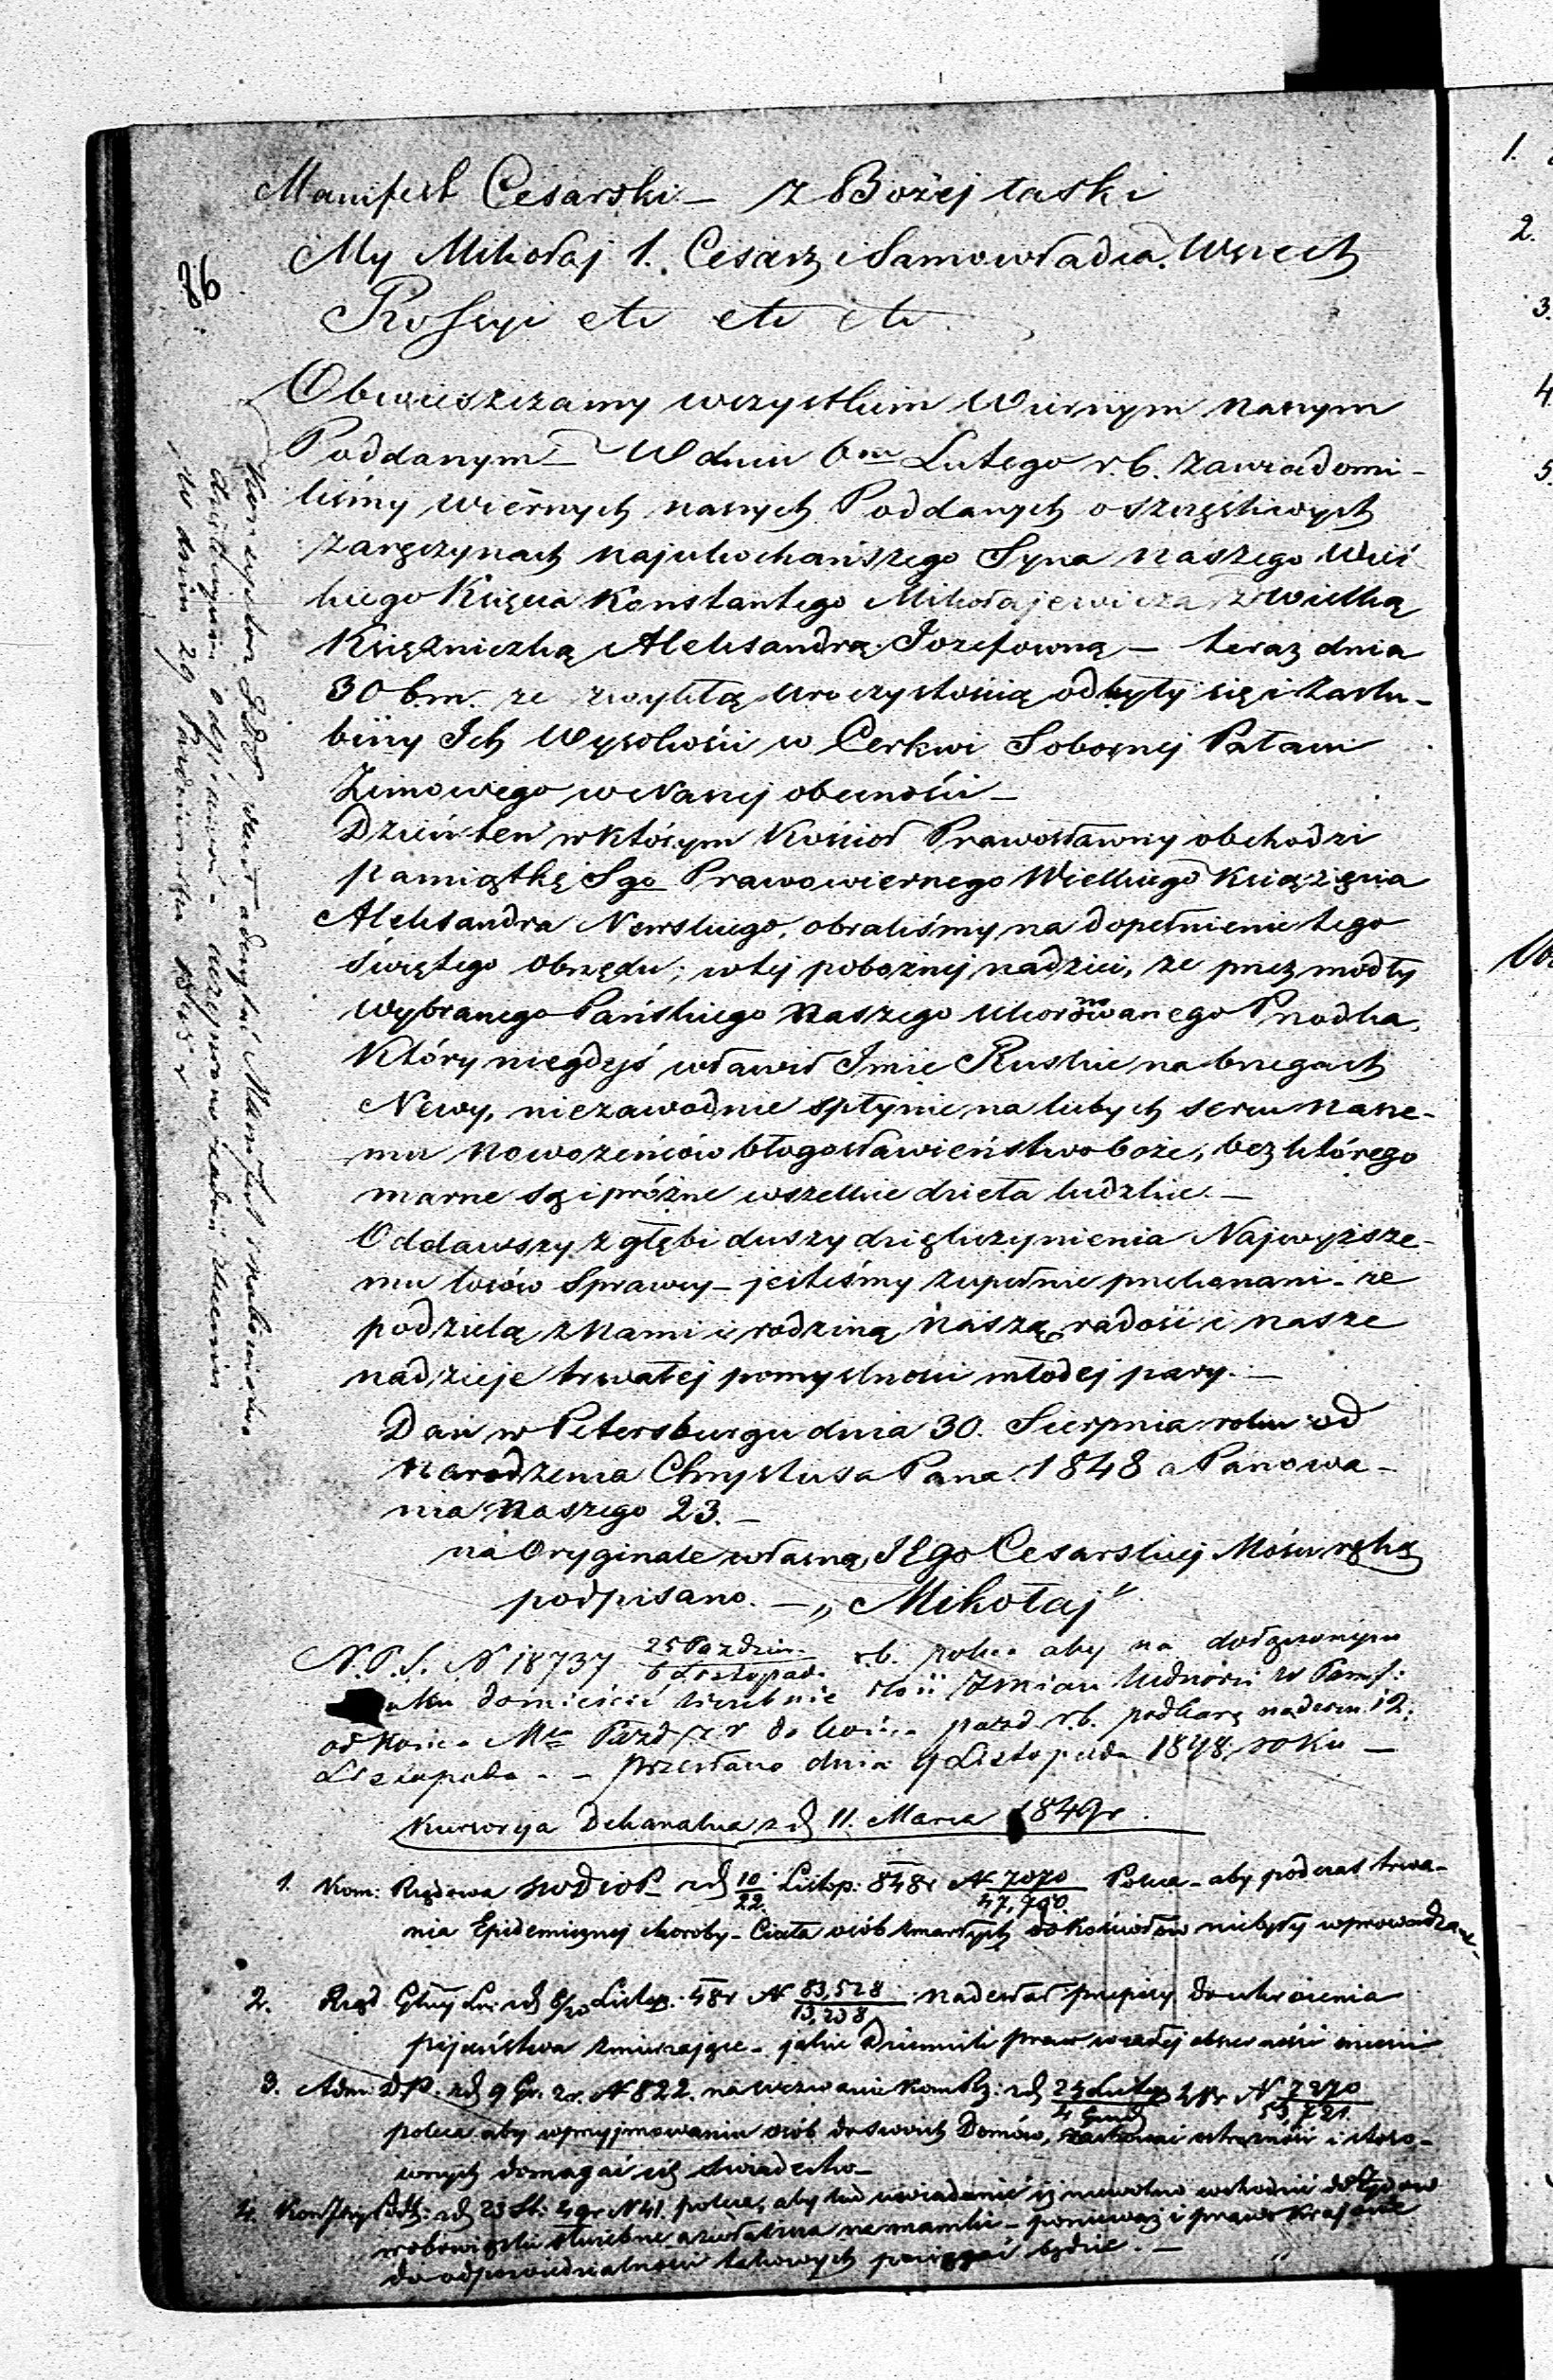 Manifest Cesarski — z Bożej łaski
My Mikołaj 1. Cesarz i Samowładca Wszech
Rossyi etc etc etc
86
Obwieszczamy wszystkim Wiernym naszym
Poddanym — W dniu 6m Lutego r.b. zawiadomi-
liśmy wiernych naszych Poddanych o szczęśliwych
zaręczynach najukochańszego Syna naszego Wiel
kiego Księcia Konstantego Mikołajewicza z Wielką
Księżniczką Aleksandrą Jozefowną — teraz dnia
30 b.m. ze zwykłą uroczystością odbyły się i zaślu-
biny Ich Wysokości w Cerkwi Sobornej Pałacu
Zimowego w Naszej obecności —
Dzień ten w którym Kościoł Prawosławny obchodzi
pamiątkę Sgo Prawowiernego Wielkiego Książęcia
Aleksandra Newskiego, obraliśmy na dopełnienie tego
świętego obrzędu; w tej pobożnej nadziei, że przez modły
wybranego Pańskiego Naszego Ukoronowanego Przodka,
Który niegdyś wsławił Imie Ruskie na brzegach
Newy, niezawodnie spłynie na lubych sercu nasze-
mu nowożeńców błogosławieństwo boże, bez którego
marne są i próżne wszelkie dzieła ludzkie. —
Oddawszy z głębi duszy dziękczynienia Najwyższe-
mu losów Sprawcy — jesteśmy zupełnie przekonani — że
podzielą z Nami i rodziną Naszą radość i nasze
nadzieje trwałej pomyślności młodej pary. —
Dan w Petersburgu dnia 30. Sierpnia roku od
Narodzenia Chrystusa Pana 1848 a Panowa-
nia Naszego 23. —
na Oryginale własną JEgo Cesarskiej Mości ręką
podpisano. — „Mikołaj"
N 18737 25 Pazdzier. / 6 Listopad. r.b. poleca aby na dołączonym
domieścić liczebnie zmian ludności w Paraf:
od Końca Mca Pazd do końca pazd r.b. pod karą nadesł. 12.
Listopada. — przesłano dnia 9 Listopada 1848 roku —
Kurrorya Dekanalna z d 11. Marca 1849r.
1. Kom: Rządowa z d 10/22 Listop: 848r N 7070/47,700. Poleca — aby podczas trwa-
nia Epidemicznej choroby — Ciała osób zmarłych do Kościołów niebyły wprowadzane.
2. Rząd Gbny z d 8/20 Listop. 48r N 83,528/13,238 nadesłał przepisy do ukrócenia
pijaństwa zmierzające — jakie Dziennik praw
3. Adm. D.P. z d 9 Gr. z r. N 822. na wezwanie Kom Rz: z d 24 Listop/4 Grud 48r N 7270/53,721.
poleca aby w przyjmowaniu osób do swoich Domów, ostrożność i stoso-
wnych domagać się świadectw —
4. z d 23 St: 49r N 41. poleca, aby lud uwiadomić iż niewolno wchodzić do Żydów
w obowiązki służebne, a zwłaszcza na mamki — ponieważ i prawo Krajowe
do odpowiedzialności takowych pociągać będzie. —
w dniu 29 Pazdziernika 1848 r